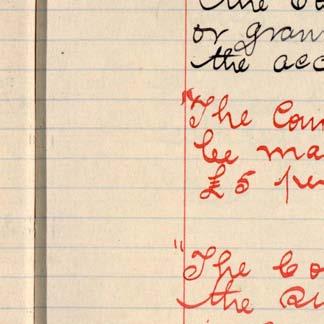 or gran
the acc
"The Cour
be ma
£5 per
"The Co
the